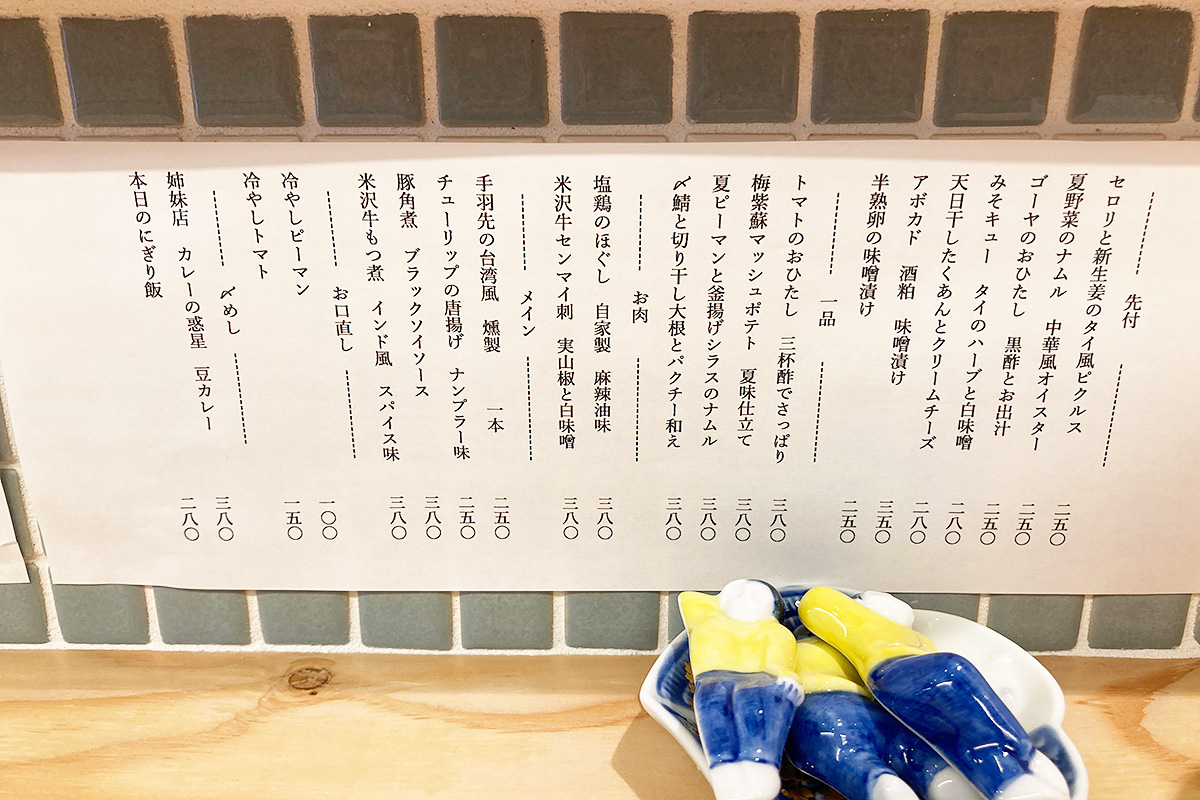 先付
セロリと新生姜のタイ風ピクルス 二五〇
夏野菜のナムル 中華風オイスター 二五〇
ゴーヤのおひたし 黒酢とお出汁 二五〇
みそキュー タイのハーブと白味噌 二八〇
天日干したくあんとクリームチーズ 二八〇
アボカド 酒粕 味噌漬け 三五〇
半熟卵の味噌漬け 二五〇
一品
トマトのおひたし 三杯酢でさっぱり 三八〇
梅紫蘇マッシュポテト 夏味仕立て 三八〇
夏ピーマンと釜揚げシラスのナムル 三八〇
〆鯖と切り干し大根とパクチー和え 三八〇
お肉
塩鶏のほぐし 自家製 麻辣油味 三八〇
米沢牛センマイ刺 実山椒と白味噌 三八〇
メイン
手羽先の台湾風 燻製 一本 二五〇
チューリップの唐揚げ ナンプラー味 二五〇
豚角煮 ブラックソイソース 三八〇
米沢牛もつ煮 インド風 スパイス味 三八〇
お口直し
冷やしピーマン 一〇〇
冷やしトマト 一五〇
〆めし
姉妹店 カレーの惑星 豆カレー 三八〇
本日のにぎり飯 二八〇